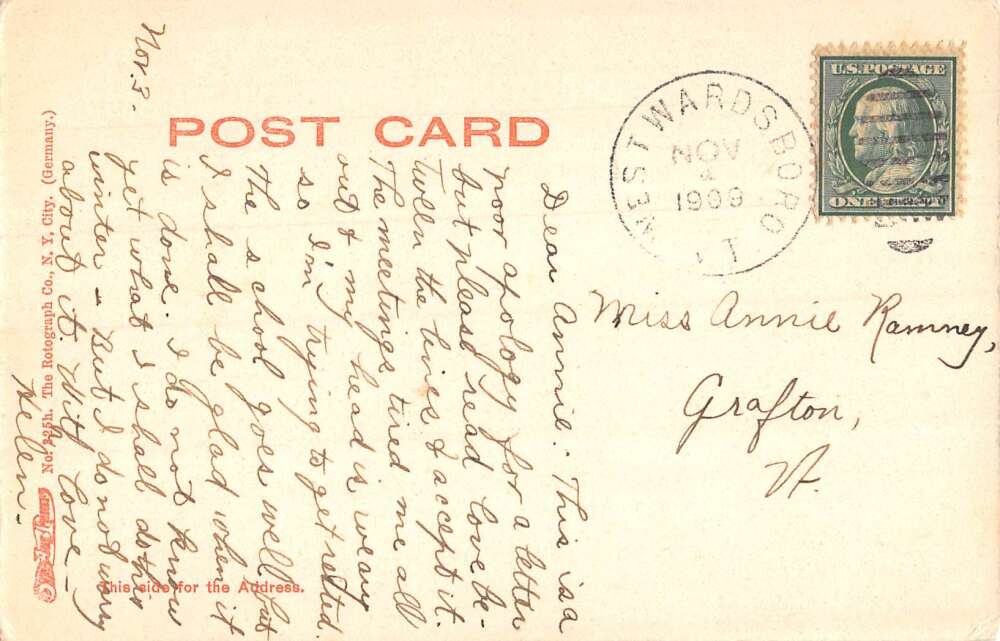 Nov. 3.
POST CARD
Dear Annie: This is a
poor apology for a letter
but please read love be-
tween the lines & accept it.
The meetings tired me all
out & my head is weary
so I'm trying to get rested.
The school goes well but
I shall be glad when it
is done. I do not know
yet what I shall do this
winter - But I do not worry
about it. With love -
Helen -
No. 325h. The Rotograph Co., N. Y. City. (Germany.)
This side for the Address.
WEST WARDSBORO
NOV
1909
U.S. POSTAGE
ONE CENT
Miss Annie Ramney,
Grafton,
Vt.